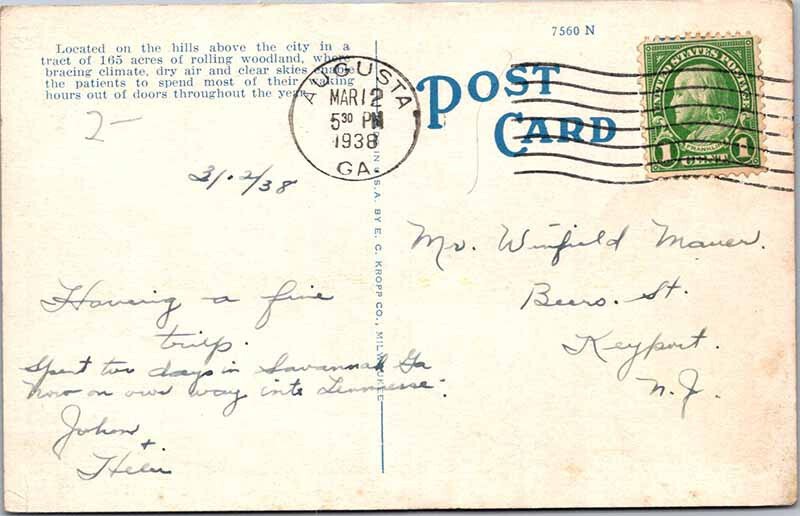 7560 N
Located on the hills above the city in a
tract of 165 acres of rolling woodland, where
bracing climate, dry air and clear skies enable
the patients to spend most of their waking
hours out of doors throughout the year.
POST
CARD
AUGUSTA
MAR 12
5 30 PM
1938
GA.
UNITED STATES POSTAGE
FRANKLIN
1 CENT 1
2-
3/12/38
Having a fine
trip.
Spent two days in Savannah Ga
Now on our way into Tennesse.
John
+
Helen
Mr. Winfield Mauer.
Beers. St.
Keyport.
N.J.
IN U.S.A. BY E. C. KROPP CO., MILWAUKEE